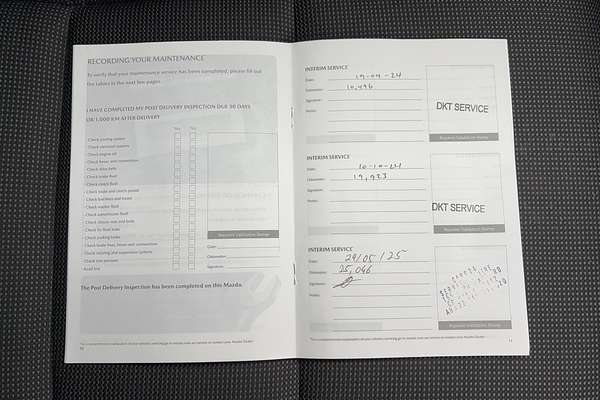 RECORDING YOUR MAINTENANCE
To verify that your maintenance service has been completed, please fill out
the tables in the next few pages.
I HAVE COMPLETED MY POST DELIVERY INSPECTION DUE 30 DAYS
OR 1,000 KM AFTER DELIVERY
Yes No
- Check cooling system
- Check engine oil
- Check hoses and connections
- Check drive belts
- Check brake fluid
- Check clutch fluid
- Check brake and clutch pedals
- Check washer fluid
- Check transmission fluid
- Check for fluid leaks
- Check parking brake
- Check brake lines, hoses and connections
- Check steering and suspension systems
- Check tyre pressure
- Road test
Repairer Validation Stamp
Date:
Odometer:
Signature:
The Post Delivery Inspection has been completed on this Mazda.
INTERIM SERVICE
Date:
Odometer: 10,496
Signature:
Notes:
DKT SERVICE
Repairer Validation Stamp
INTERIM SERVICE
Date: 10-10-24
Odometer: 19,923
Signature:
Notes:
DKT SERVICE
Repairer Validation Stamp
INTERIM SERVICE
Date: 29/05/25
Odometer: 25,046
Signature:
Notes:
Repairer Validation Stamp
11